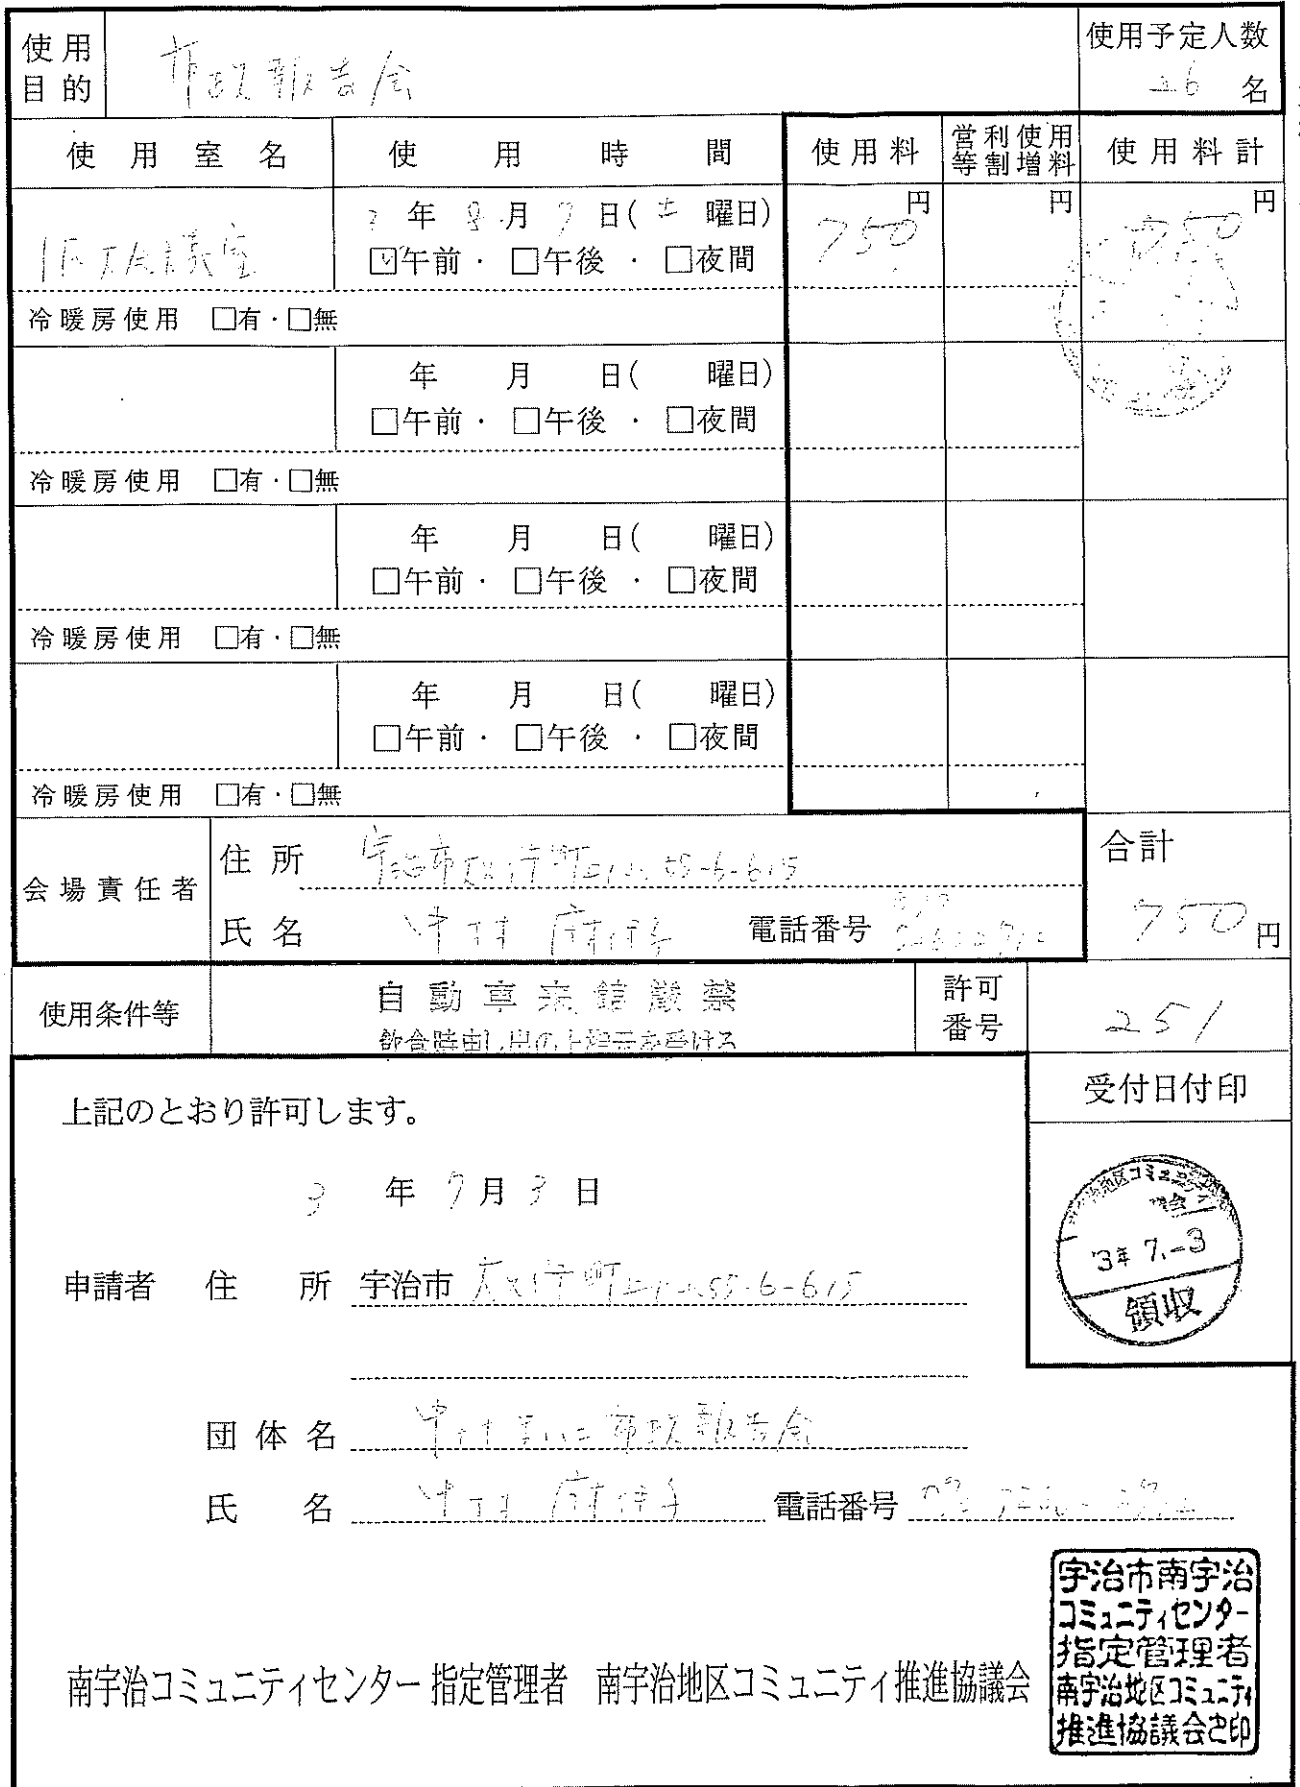 使用目的 市政報告会 使用予定人数 26名
使用室名 使用時間 使用料 営利使用等割増料 使用料計
3年8月7日(土曜日) 750円 円 750円
☑午前・□午後・□夜間
冷暖房使用 □有・□無
年 月 日( 曜日)
□午前・□午後・□夜間
冷暖房使用 □有・□無
年 月 日( 曜日)
□午前・□午後・□夜間
冷暖房使用 □有・□無
年 月 日( 曜日)
□午前・□午後・□夜間
冷暖房使用 □有・□無
会場責任者 住所 宇治市 55-6-615 合計
氏名 中村 麻伊子 電話番号 750円
使用条件等 自動車来館厳禁 許可番号 251
飲食時申し出の上指示を受ける
上記のとおり許可します。 受付日付印
3年7月3日
南宇治地区コミュニティ
3年 7.-3
領収
申請者 住所 宇治市 55-6-615
団体名 市政報告会
氏名 中村 麻伊子 電話番号
南宇治コミュニティセンター 指定管理者 南宇治地区コミュニティ推進協議会
宇治市南宇治
コミュニティセンター
指定管理者
南宇治地区コミュニティ
推進協議会之印